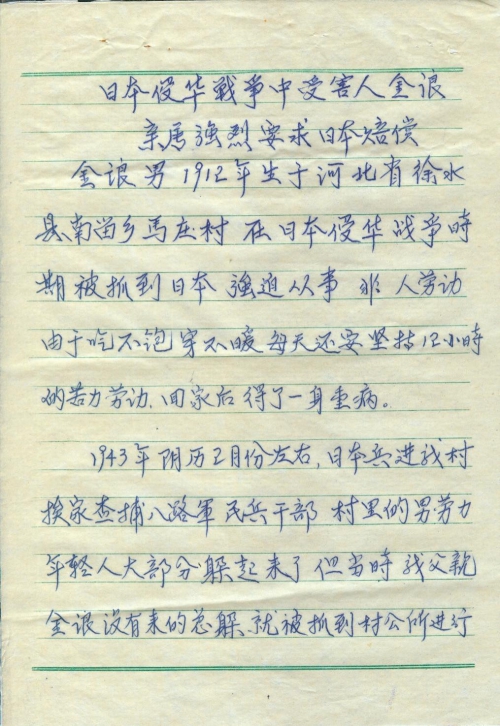 日本侵华战争中受害人金银
亲属强烈要求日本赔偿
金银男1912年生于河北省徐水
县南留乡马庄村 在日本侵华战争時
期被抓到日本 強迫从事 非 人劳动
由于吃不饱穿不暖每天还要坚持12小時
的苦力劳动、回家后得了一身重病。
1943年阴历2月份左右,日本兵进我村
挨家查捕八路軍民兵干部 村里的男劳力
年轻人大部分躲起来了但当時我父親
金银没有来的急躲、就被抓到村公所进行